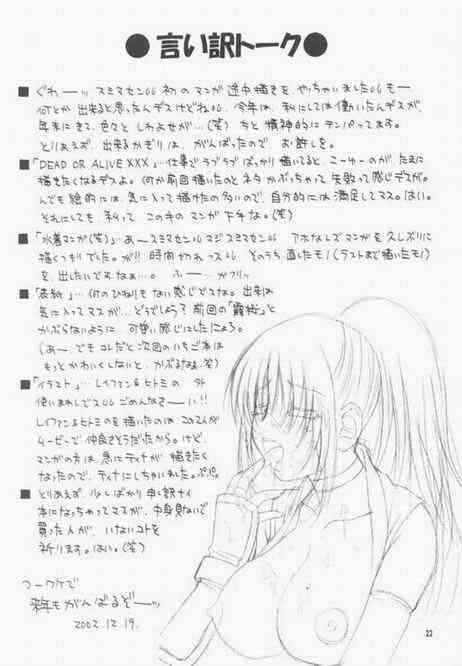 ● 言い訳トーク ●
■ ぐわーッ スミマセン!! 初のマンガ途中描きをやっちゃいました!! もー
何とか出来ると思ったんデスけどね!! 今年は、私にしては働いたんデスが、
年末にきて、色々としわよせが…(笑) ちと精神的にテンパってます。
とりあえず、出来るかぎりは、がんばったので、お許しを。
■「DEAD OR ALIVE XXX」…仕事でラブラブばっかり描いてると、こーゆーのが、たまに
描きたくなるデスよ。(何か前回描いたのとネタかぶっちゃって失敗って感じデスが。
んでも絵的には、気に入って描けたの多いので、自分的には満足してマス。はい。
それにしても 私って この手のマンガ 下手な。(笑)
■「水着マンガ(笑)」…あースミマセン!! マジスミマセン!! アホなしでマンガを久しぶりに
描くつもりでした。が!! 時間切れっス!! そのうち直したモノ(ラストまで描いたモノ)
を出したいですなぁ…。 ふー…がフリッ
■「表紙」…何のひねりもない感じですな。出来は
気に入ってマスが…どうでしょう? 前回の「霞桜」と
かぶらないように 可愛い感じにしたにょろ。
(あー、でもコレだと次回のいちご本は
もっとかわいくしないと、かぶるなぁ。笑)
■「イラスト」…レイファン&ヒトミの 外
使いまわしでス!! ごめんなさーい!!
レイファン&ヒトミのを描いたのは、この2人が
4一ザーで仲良さそうだったから。けど、
マンガの方は、急にティナが描きたく
なったので、ティナにしちゃいました。ペペペ。
■ とりあえず、少しばかり申し訳ナイ
本になっちゃってマスが、中身見ないで
買った人が、いないコトを
祈ります。はい。(笑)
つーワケで
来年もがんばるぞーッ
2002.12.19.
22